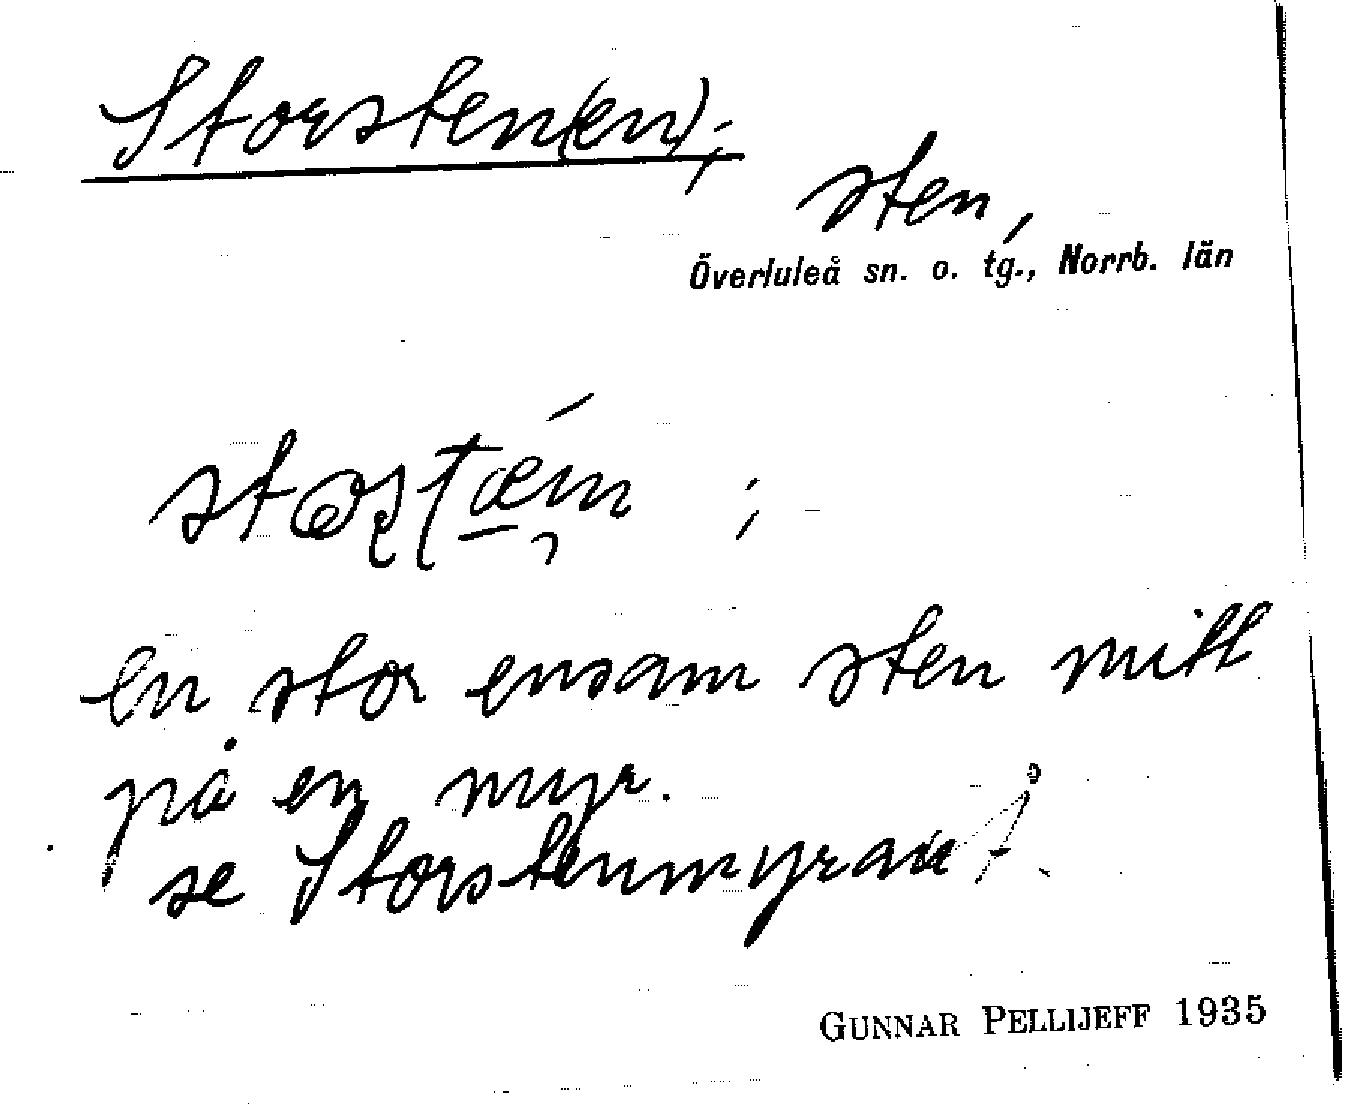 Storsten(en);
sten,
Överluleå sn. o. tg., Norrb. län
en stor ensam sten mitt
på en myr.
se Storstenmyran
GUNNAR PELLIJEFF 1935